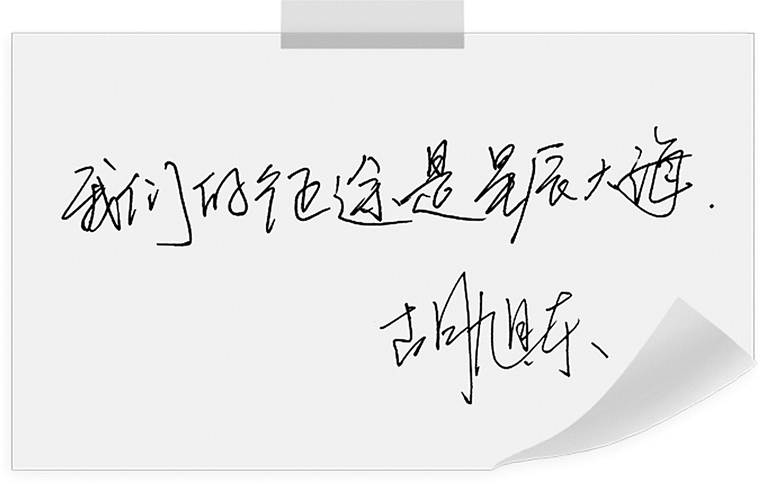 我们的征途是星辰大海.
胡旭东